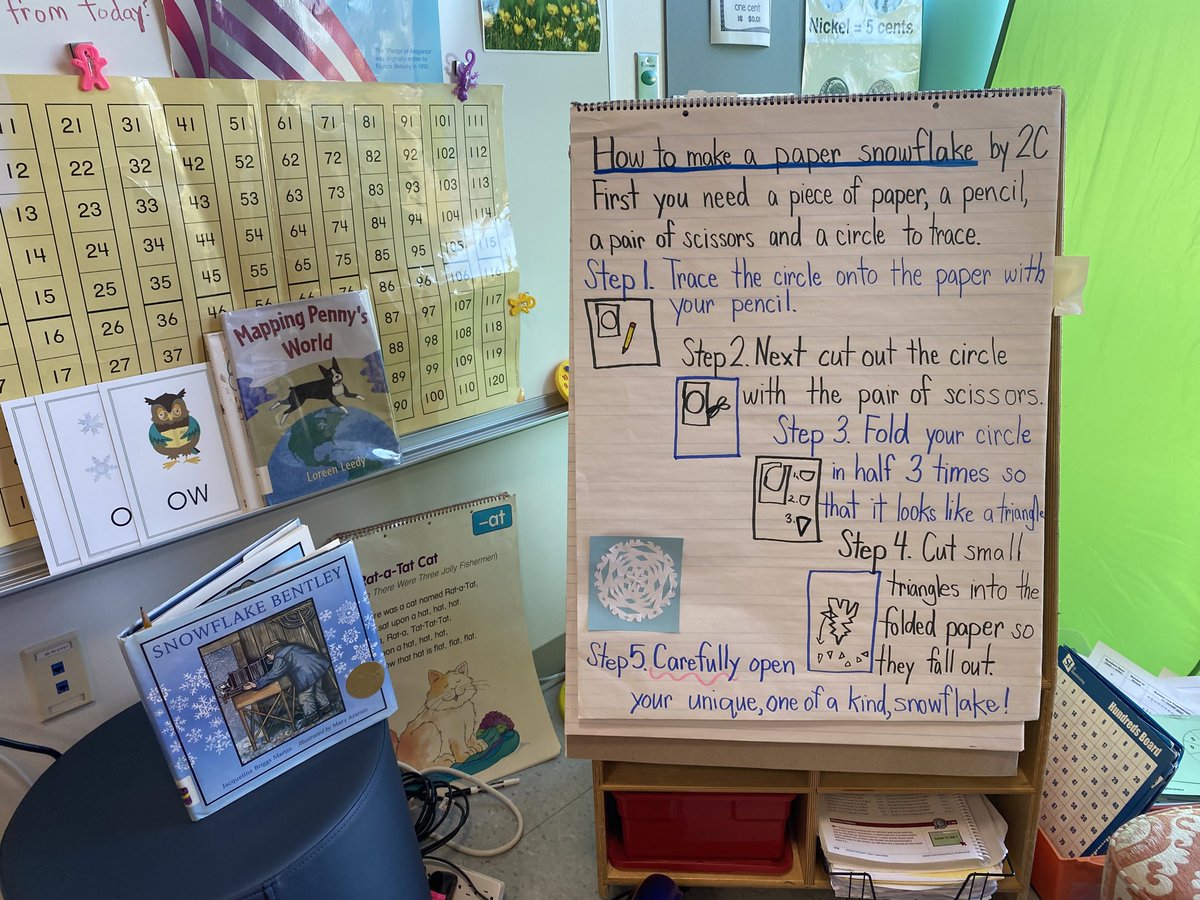 from today?
The "Pledge of Allegiance"
was originally written by
Francis Bellamy in 1892.
one cent
1¢ $0.01
Nickel = 5 cents
11 21 31 41 51 61 71 81 91 101 111
12 22 32 42 52 62 72 82 92 102 112
13 23 33 43 53 63 73 83 93 103 113
14 24 34 44 54 64 74 84 94 104 114
15 25 35 45 55 65 75 85 95 105 115
16 26 36 46 56 66 76 86 96 106 116
17 27 37 107 117
88 98 108 118
89 99 109 119
90 100 110 120
Mapping Penny's
World
Loreen Leedy
O
OW
SNOWFLAKE BENTLEY
Jacqueline Briggs Martin Illustrated by Mary Azarian
-at
Rat-a-Tat Cat
There Were Three Jolly Fishermen)
was a cat named Rat-a-Tat,
sat upon a hat, hat, hat.
Rat-a, Tat-Tat-Tat,
upon a hat, hat, hat,
that hat is flat, flat, flat!
How to make a paper snowflake by 2C
First you need a piece of paper, a pencil,
a pair of scissors and a circle to trace.
Step 1. Trace the circle onto the paper with
your pencil.
Step 2. Next cut out the circle
with the pair of scissors.
Step 3. Fold your circle
in half 3 times so
that it looks like a triangle
1.
2.
3.
Step 4. Cut small
triangles into the
folded paper so
they fall out.
Step 5. Carefully open
your unique, one of a kind, snowflake!
Hundreds Board